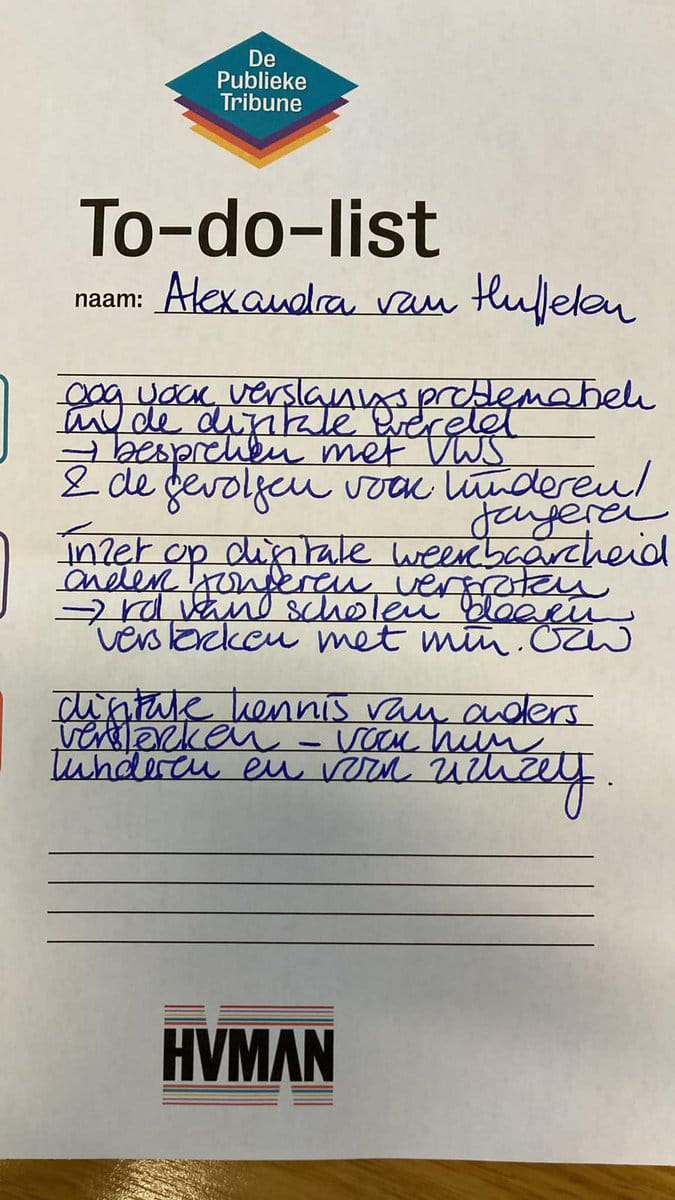 De
Publieke
Tribune
To-do-list
naam: Alexandra van Huffelen
oog voor verslavingsproblematiek
in de digitale wereld
→ bespreken met VWS
& de gevolgen voor kinderen/
jongeren
inzet op digitale weerbaarheid
onder jongeren vergroten
→ rol van scholen daarin
versterken met min. OCW
digitale kennis van ouders
versterken – voor hun
kinderen en voor zichzelf.
HVMAN